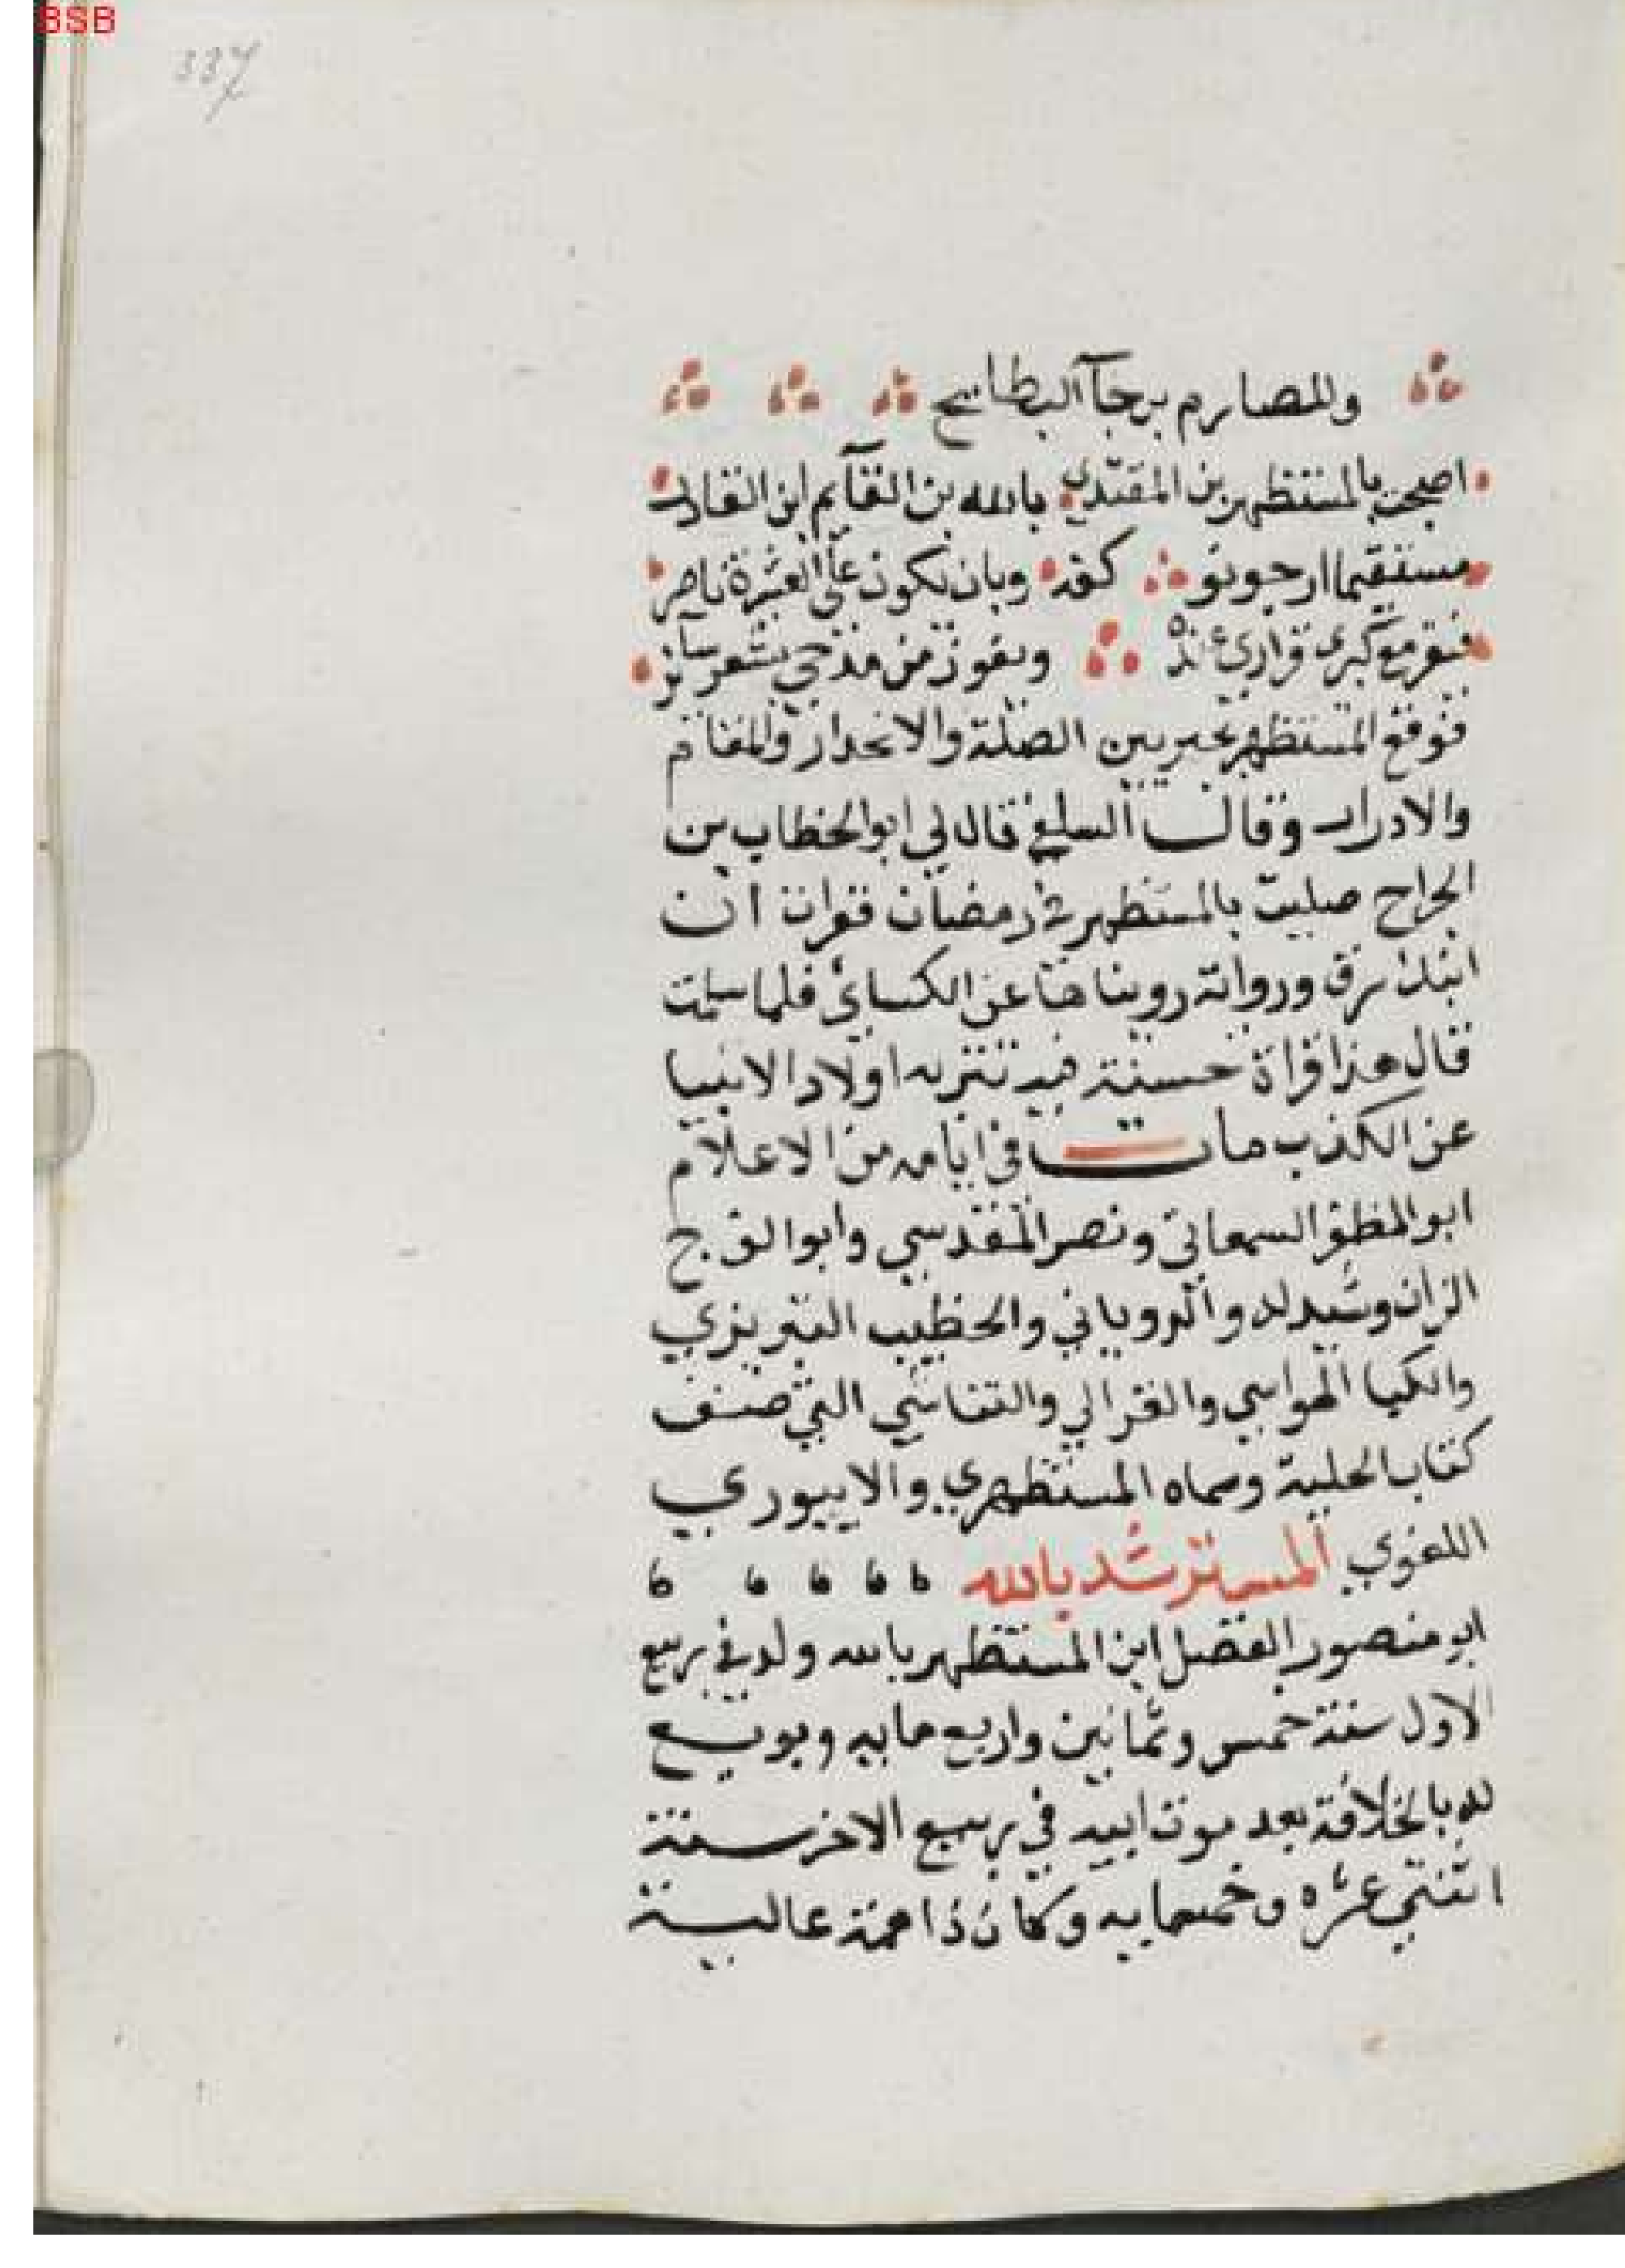 BSB
337
والمصارم برجآ البطايح
اصبحت بالمستظهر بن المقتدي بالله بن القآيم ابن القادر
مستقيما ارجو نو كفه وبان يكون على العشرة ناصر
فيقر مع كبرى قراري عنده ويفوز من مدحي بشعر ساير
فوقع المستظهر بخير بين الصلة والانحدار والمقام
والادرار وقال السلفي قال لي ابو الخطاب بن
الجراح صليت بالمستظهر في رمضان فقرات ان
ابنك سرق ورواية رويناها عن الكسائي فلما سلمت
قال هذا قراة حسنة فيه تنزيه اولاد الانبيا
عن الكذب مات في ايامه من الاعلام
ابو المظفر السمعاني ونصر المقدسي وابو الفرج
الزاز وشيدله والروياني والخطيب التبريزي
والكيا الهراسي والغزالي والشاشي الذي صنف
كتاب الحلية وسماه المستظهري والابيوردي
اللغوي المسترشد بالله
ابو منصور الفضل ابن المستظهر بالله ولد في ربيع
الاول سنة خمس وثمانين واربع مايه وبويع
له بالخلافة بعد موت ابيه في ربيع الاخر سنة
اثنتي عشره وخمسمايه وكان ذا همة عالية